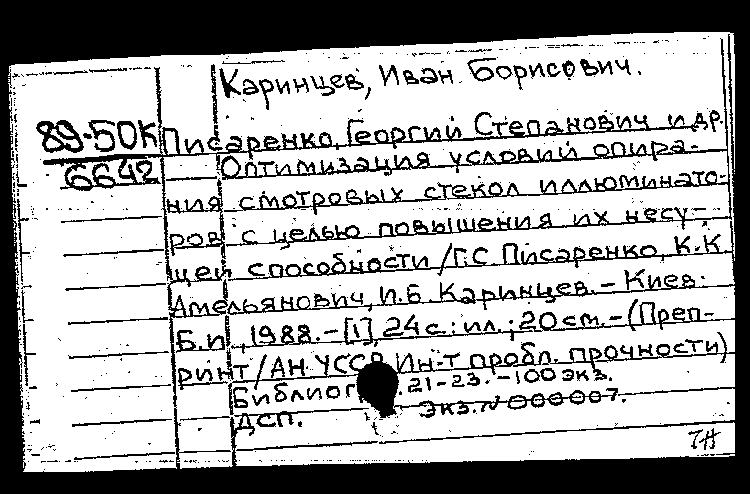 Каринцев, Иван Борисович.
89-50К Писаренко, Георгий Степанович и др.
6642 Оптимизация условий опира-
ния смотровых стекол иллюминато-
ров с целью повышения их несу-
щей способности / Г.С. Писаренко, К.К.
Амельянович, И.Б. Каринцев. – Киев:
Б.и., 1988. – [1], 24 с.: ил.; 20 см. – (Преп-
ринт / АН УССР Ин-т пробл. прочности)
21-23. – 100 экз.
ДСП. Экз. N 000007.